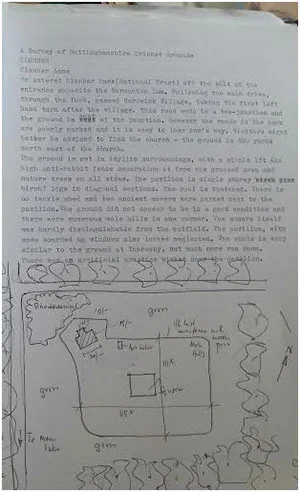 A Survey of Nottinghamshire Cricket Grounds
CLUMBER
Clumber Lane
We entered Clumber Park(National Trust) off the A614 at the
entrance opposite the Normanton Inn. Following the main drive,
through the ford, passed Hardwick Village, taking the first left
hand turn after the village. This road ends in a tee-junction and
the ground is of the junction. However the roads in the park
are poorly marked and it is easy to lose one's way. Visitors might
better be advised to find the church - the ground is 450 yards
north west of the church.
The ground is set in idyllic surroundings, with a single 4ft 6in
high anti-rabbit fence separating it from the grassed area and
mature trees on all sides. The pavilion is single storey
birch? logs in diagonal sections. The roof is thatched. There is
no tackle shed and two ancient movers were parked next to the
pavilion. The ground did not appear to be in a good condition and
there were numerous mole hills in one corner. The square itself
was hardly distinguishable from the outfield. The pavilion, with
some boarded up windows also looked neglected. The whole is very
similar to the ground at Thoresby, but much more run down.
There was an artificial practice wicket near the pavilion.
Rhododendrons
grass
Mole
Hills
grass
Square
grass
To Main
lake
grass